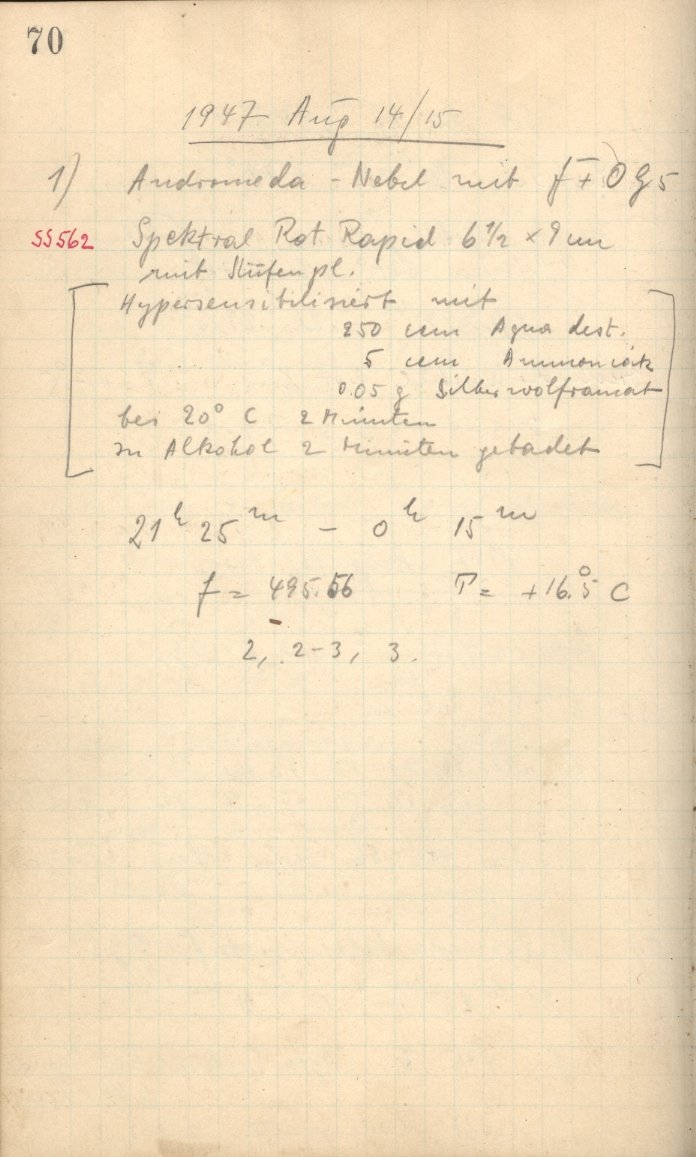 70
1947 Aug 14/15
1) Andromeda-Nebel mit f + OG5
SS562 Spektral Rot Rapid 6 1/2 x 9 cm
mit Stufenpl.
Hypersensibilisiert mit
250 ccm Aqua dest.
5 ccm Ammoniak
0.05 g Silberwolframat
bei 20° C 2 Minuten
in Alkohol 2 Minuten gebadet
21h 25m - 0h 15m
f = 495.56 T = +16.°5 C
2, 2-3, 3.